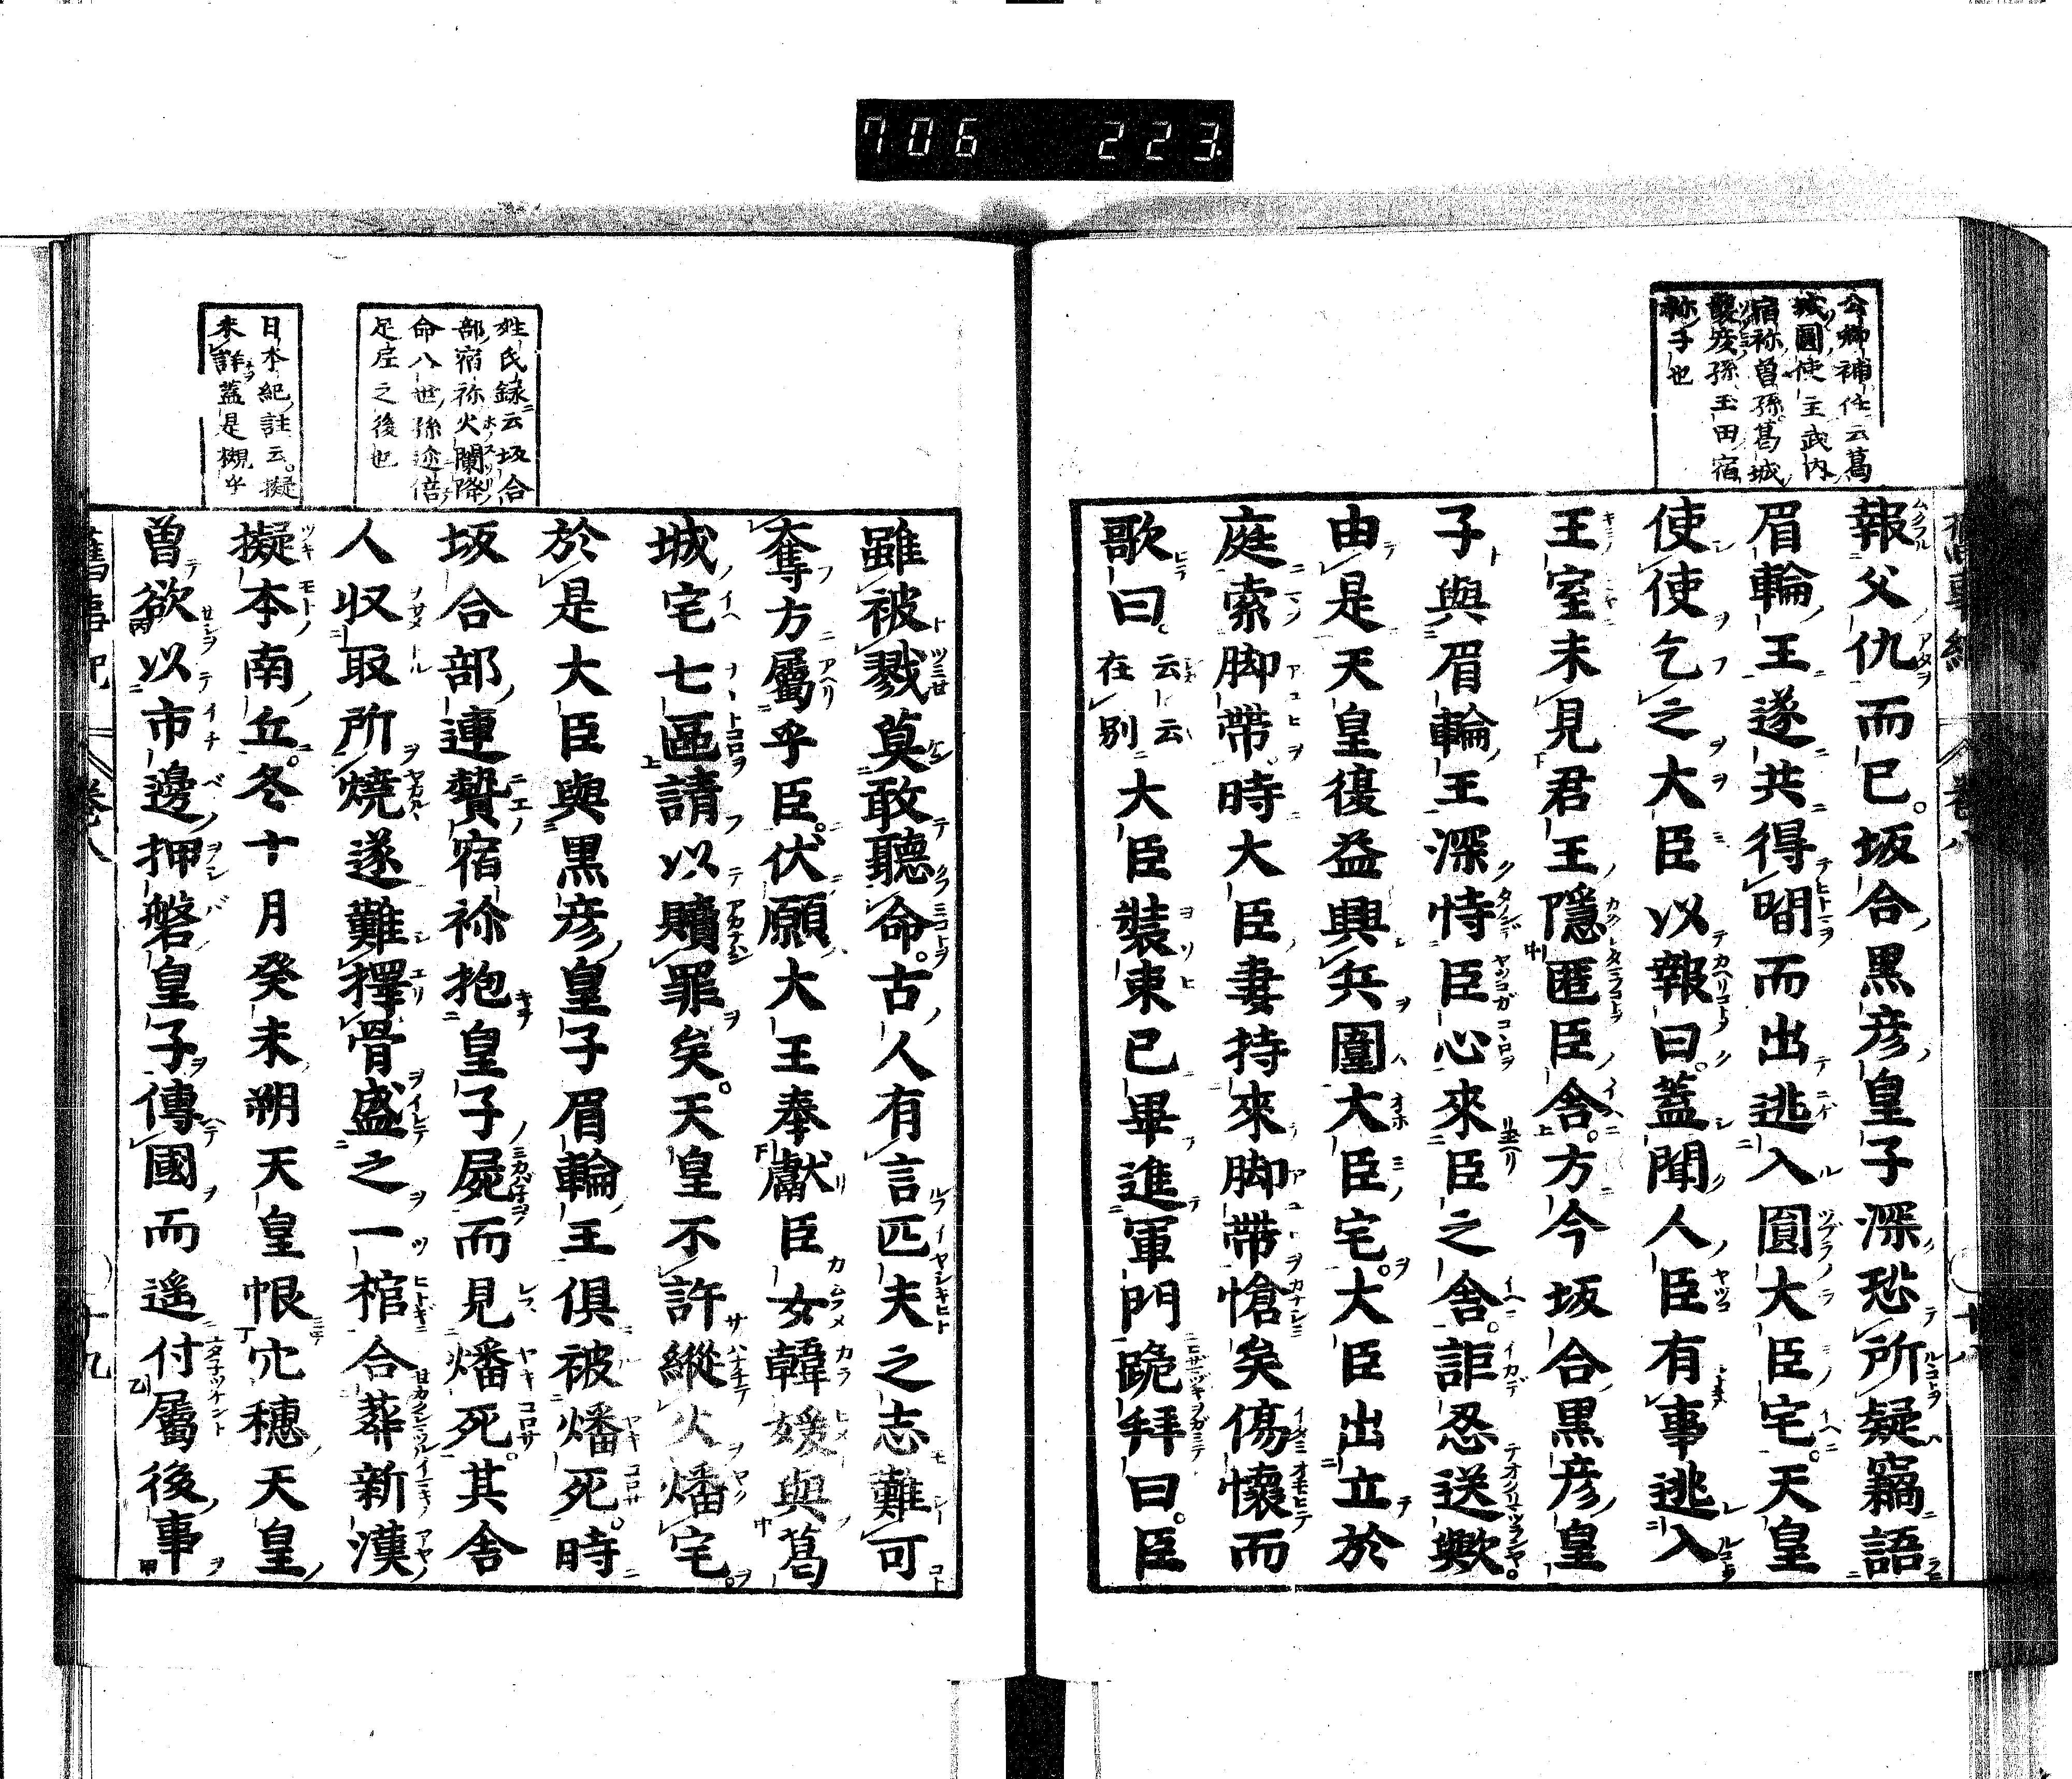 706 223
公卿補任云葛
城圓使主武内
宿祢曽孫葛城
襲彦孫玉田宿
祢子也
報父仇而已坂合黒彦皇子深恐所疑竊語
眉輪王遂共得間而出逃入圓大臣宅天皇
使使乞之大臣以報曰蓋聞人臣有事逃入
王室未見君王隠匿臣舎方今坂合黒彦皇
子與眉輪王深恃臣心來臣之舎詎忍送歟
由是天皇復益興兵圍大臣宅大臣出立於
庭索脚帶時大臣妻持來脚帶愴矣傷懷而
歌曰云云在別大臣裝束已畢進軍門跪拜曰臣
姓氏録云坂合
部宿祢火闌降
命八世孫迩倍
足尼之後也
日本紀註云擬
未詳蓋是槻乎
雖被戮莫敢聽命古人有言匹夫之志難可
奪方屬乎臣伏願大王奉獻臣女韓媛與葛
城宅七區請以贖罪矣天皇不許縱火燔宅
於是大臣與黒彦皇子眉輪王倶被燔死時
坂合部連贄宿祢抱皇子屍而見燔死其舎
人収取所燒遂難擇骨盛之一棺合葬新漢
擬本南丘冬十月癸未朔天皇恨穴穗天皇
曽欲以市邊押磐皇子傳國而遥付屬後事
舊事紀 卷八 十九